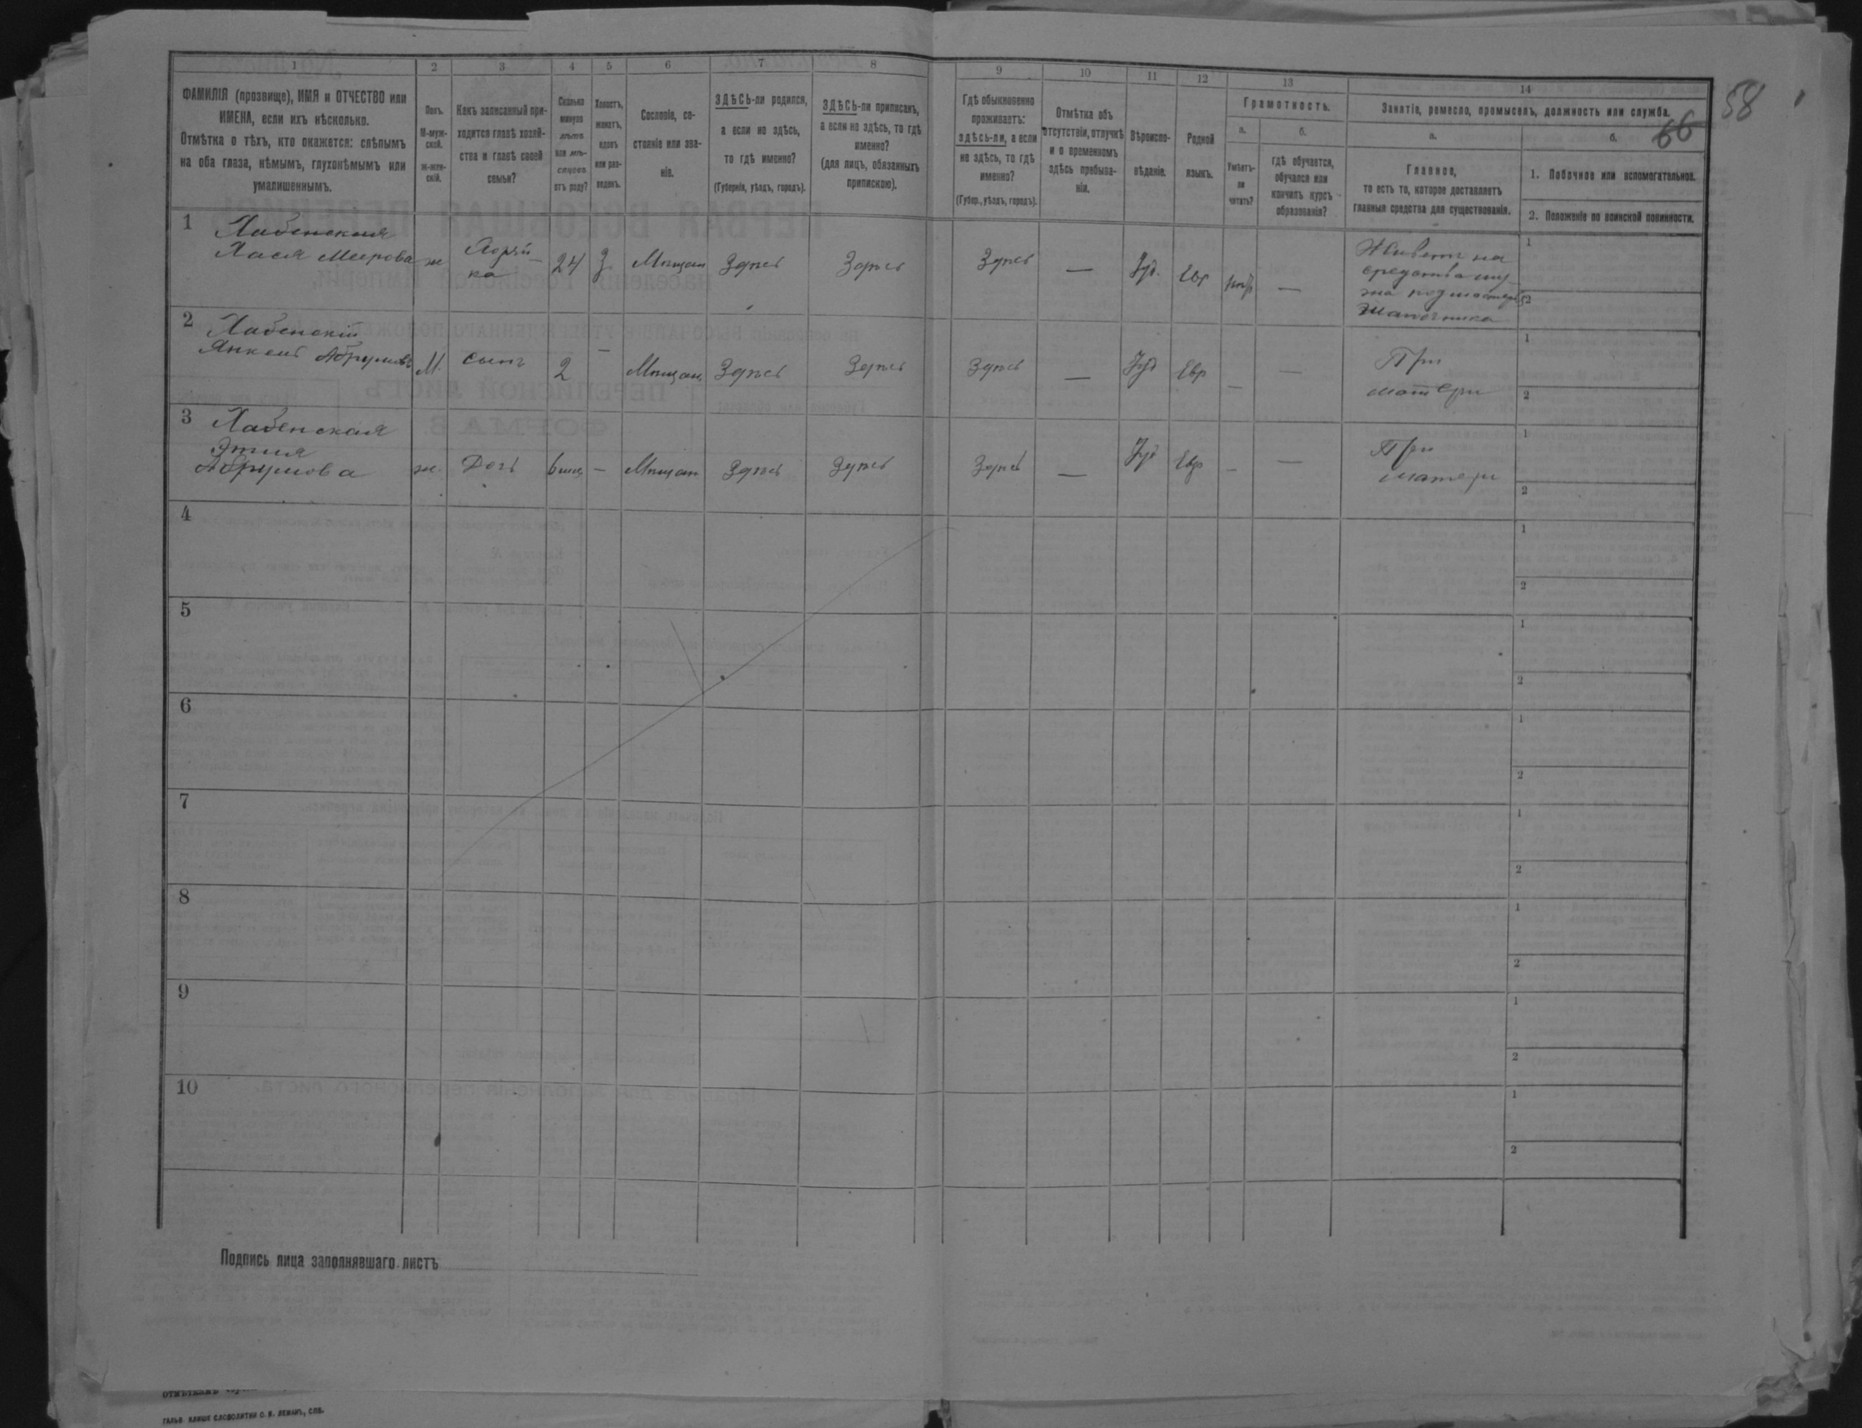 58
66
1
2
3
4
5
6
7
8
9
10
11
12
13
14
ФАМИЛІЯ (прозвище), ИМЯ и ОТЧЕСТВО или
ИМЕНА, если ихъ нѣсколько.
Отмѣтка о тѣхъ, кто окажется: слѣпымъ
на оба глаза, нѣмымъ, глухонѣмымъ или
умалишеннымъ.
Полъ.
М-муж-
ской.
Ж-жен-
скій.
Какъ записанный при-
ходится главѣ хозяй-
ства и главѣ своей
семьи?
Сколько
минуло
лѣтъ
или мѣ-
сяцевъ
отъ роду?
Холостъ,
женатъ,
вдовъ
или раз-
веденъ.
Сословіе, со-
стояніе или зва-
ніе.
ЗДѢСЬ-ли родился,
а если не здѣсь,
то гдѣ именно?
(Губернія, уѣздъ, городъ).
ЗДѢСЬ-ли приписанъ,
а если не здѣсь, то гдѣ
именно?
(для лицъ, обязанныхъ
припискою).
Гдѣ обыкновенно
проживаетъ:
здѣсь-ли, а если
не здѣсь, то гдѣ
именно?
(Губер., уѣздъ, городъ).
Отмѣтка объ
отсутствіи, отлучкѣ
и о временномъ
здѣсь пребыва-
ніи.
Вѣроиспо-
вѣданіе.
Родной
языкъ.
Грамотность.
а.
Умѣетъ-
ли
читать?
б.
гдѣ обучается,
обучался или
кончилъ курсъ
образованія?
Занятіе, ремесло, промыселъ, должность или служба.
а.
Главное,
то есть то, которое доставляетъ
главныя средства для существованія.
б.
1. Побочное или вспомогательное.
2. Положеніе по воинской повинности.
1
Хабенская
Хася Меерова
ж
24
З
Мѣщан
Здѣсь
Здѣсь
Здѣсь
—
Іуд.
Евр
—
Живетъ на
средства му
жа подмастерья
Шапочника
1
2
2
Хабенскій
Янкель Абрумовъ
М.
сынъ
2
—
Мѣщан
Здѣсь
Здѣсь
Здѣсь
—
Іуд
Евр
—
—
При
матери
1
2
3
Хабенская
Абрумова
ж.
Дочь
6 мѣц
—
Мѣщан
Здѣсь
Здѣсь
Здѣсь
—
Іуд
Евр
—
—
При
матери
1
2
4
1
2
5
1
2
6
1
2
7
1
2
8
1
2
9
1
2
10
1
2
Подпись лица заполнявшаго листъ